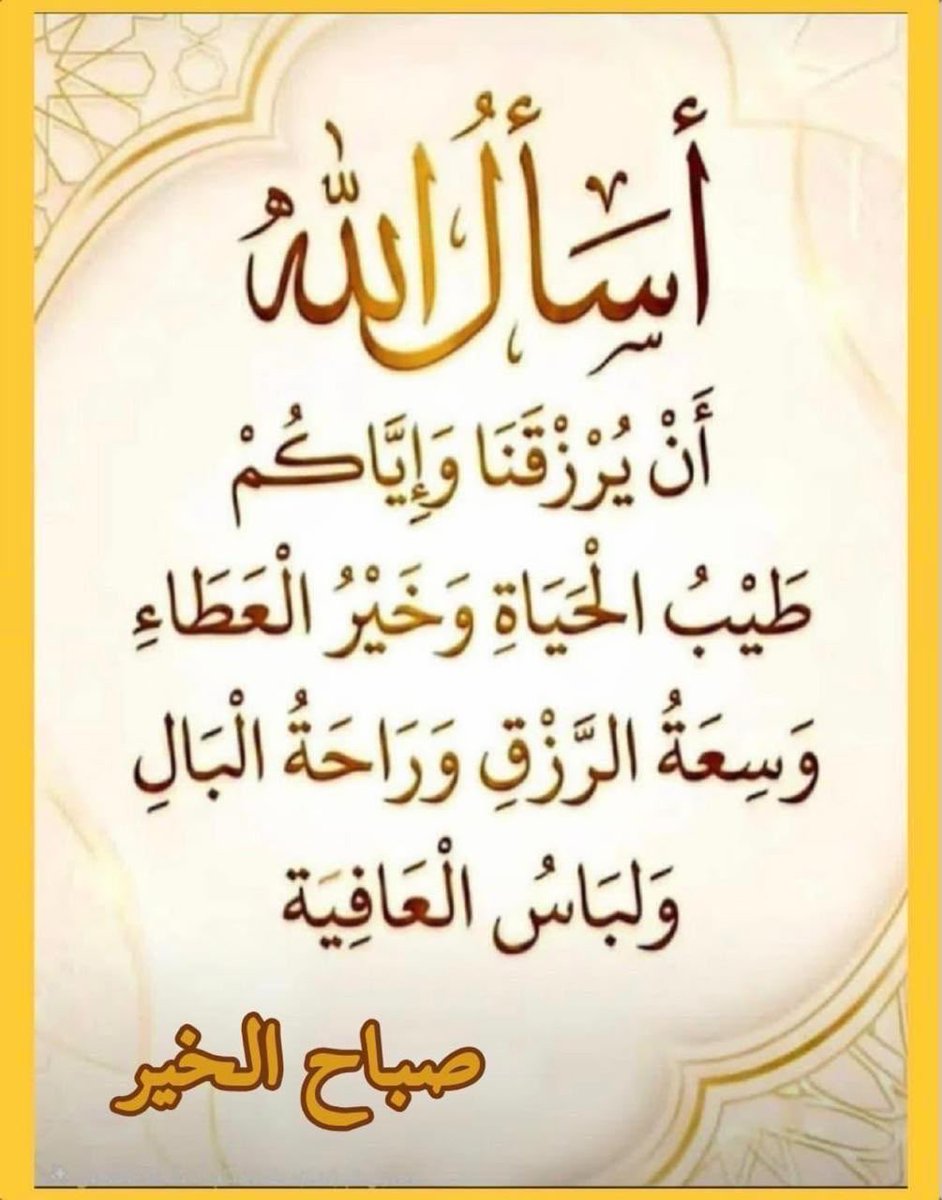 أسألُ اللهُ
أَنْ يُرْزِقَنَا وَإِيَّاكُمْ
طَيْبُ الْحَيَاةِ وَخَيْرُ الْعَطَاءِ
وَسِعَةُ الرَّزْقِ وَرَاحَةُ الْبَالِ
وَلبَاسُ الْعَافِيَة
صباح الخير